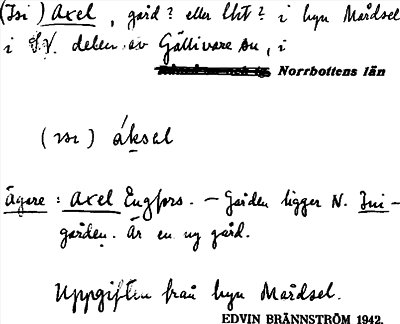 (Isi) Axel, gård? eller lht? i byn Mårdsel
i S.V. delen av Gällivare sn, i
Norrbottens län
(isi) áksel
Ägare: Axel Engfors. – Gården ligger N. Isi-
gården. Är en ny gård.
Uppgiften från byn Mårdsel.
EDVIN BRÄNNSTRÖM 1942.